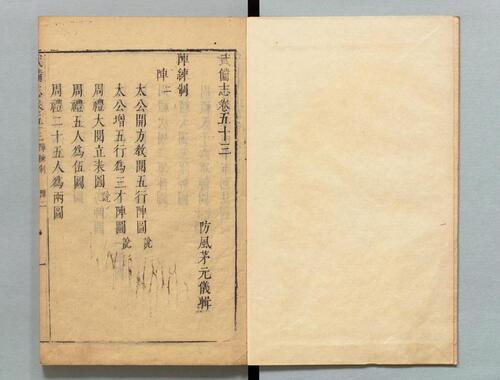 武備志卷五十三
防風茅元儀輯
陣練制
陣二
太公開方教閱五行陣圖 說
太公增五行為三才陣圖 說
周禮大閱立表圖 說
周禮五人為伍圖
周禮二十五人為兩圖